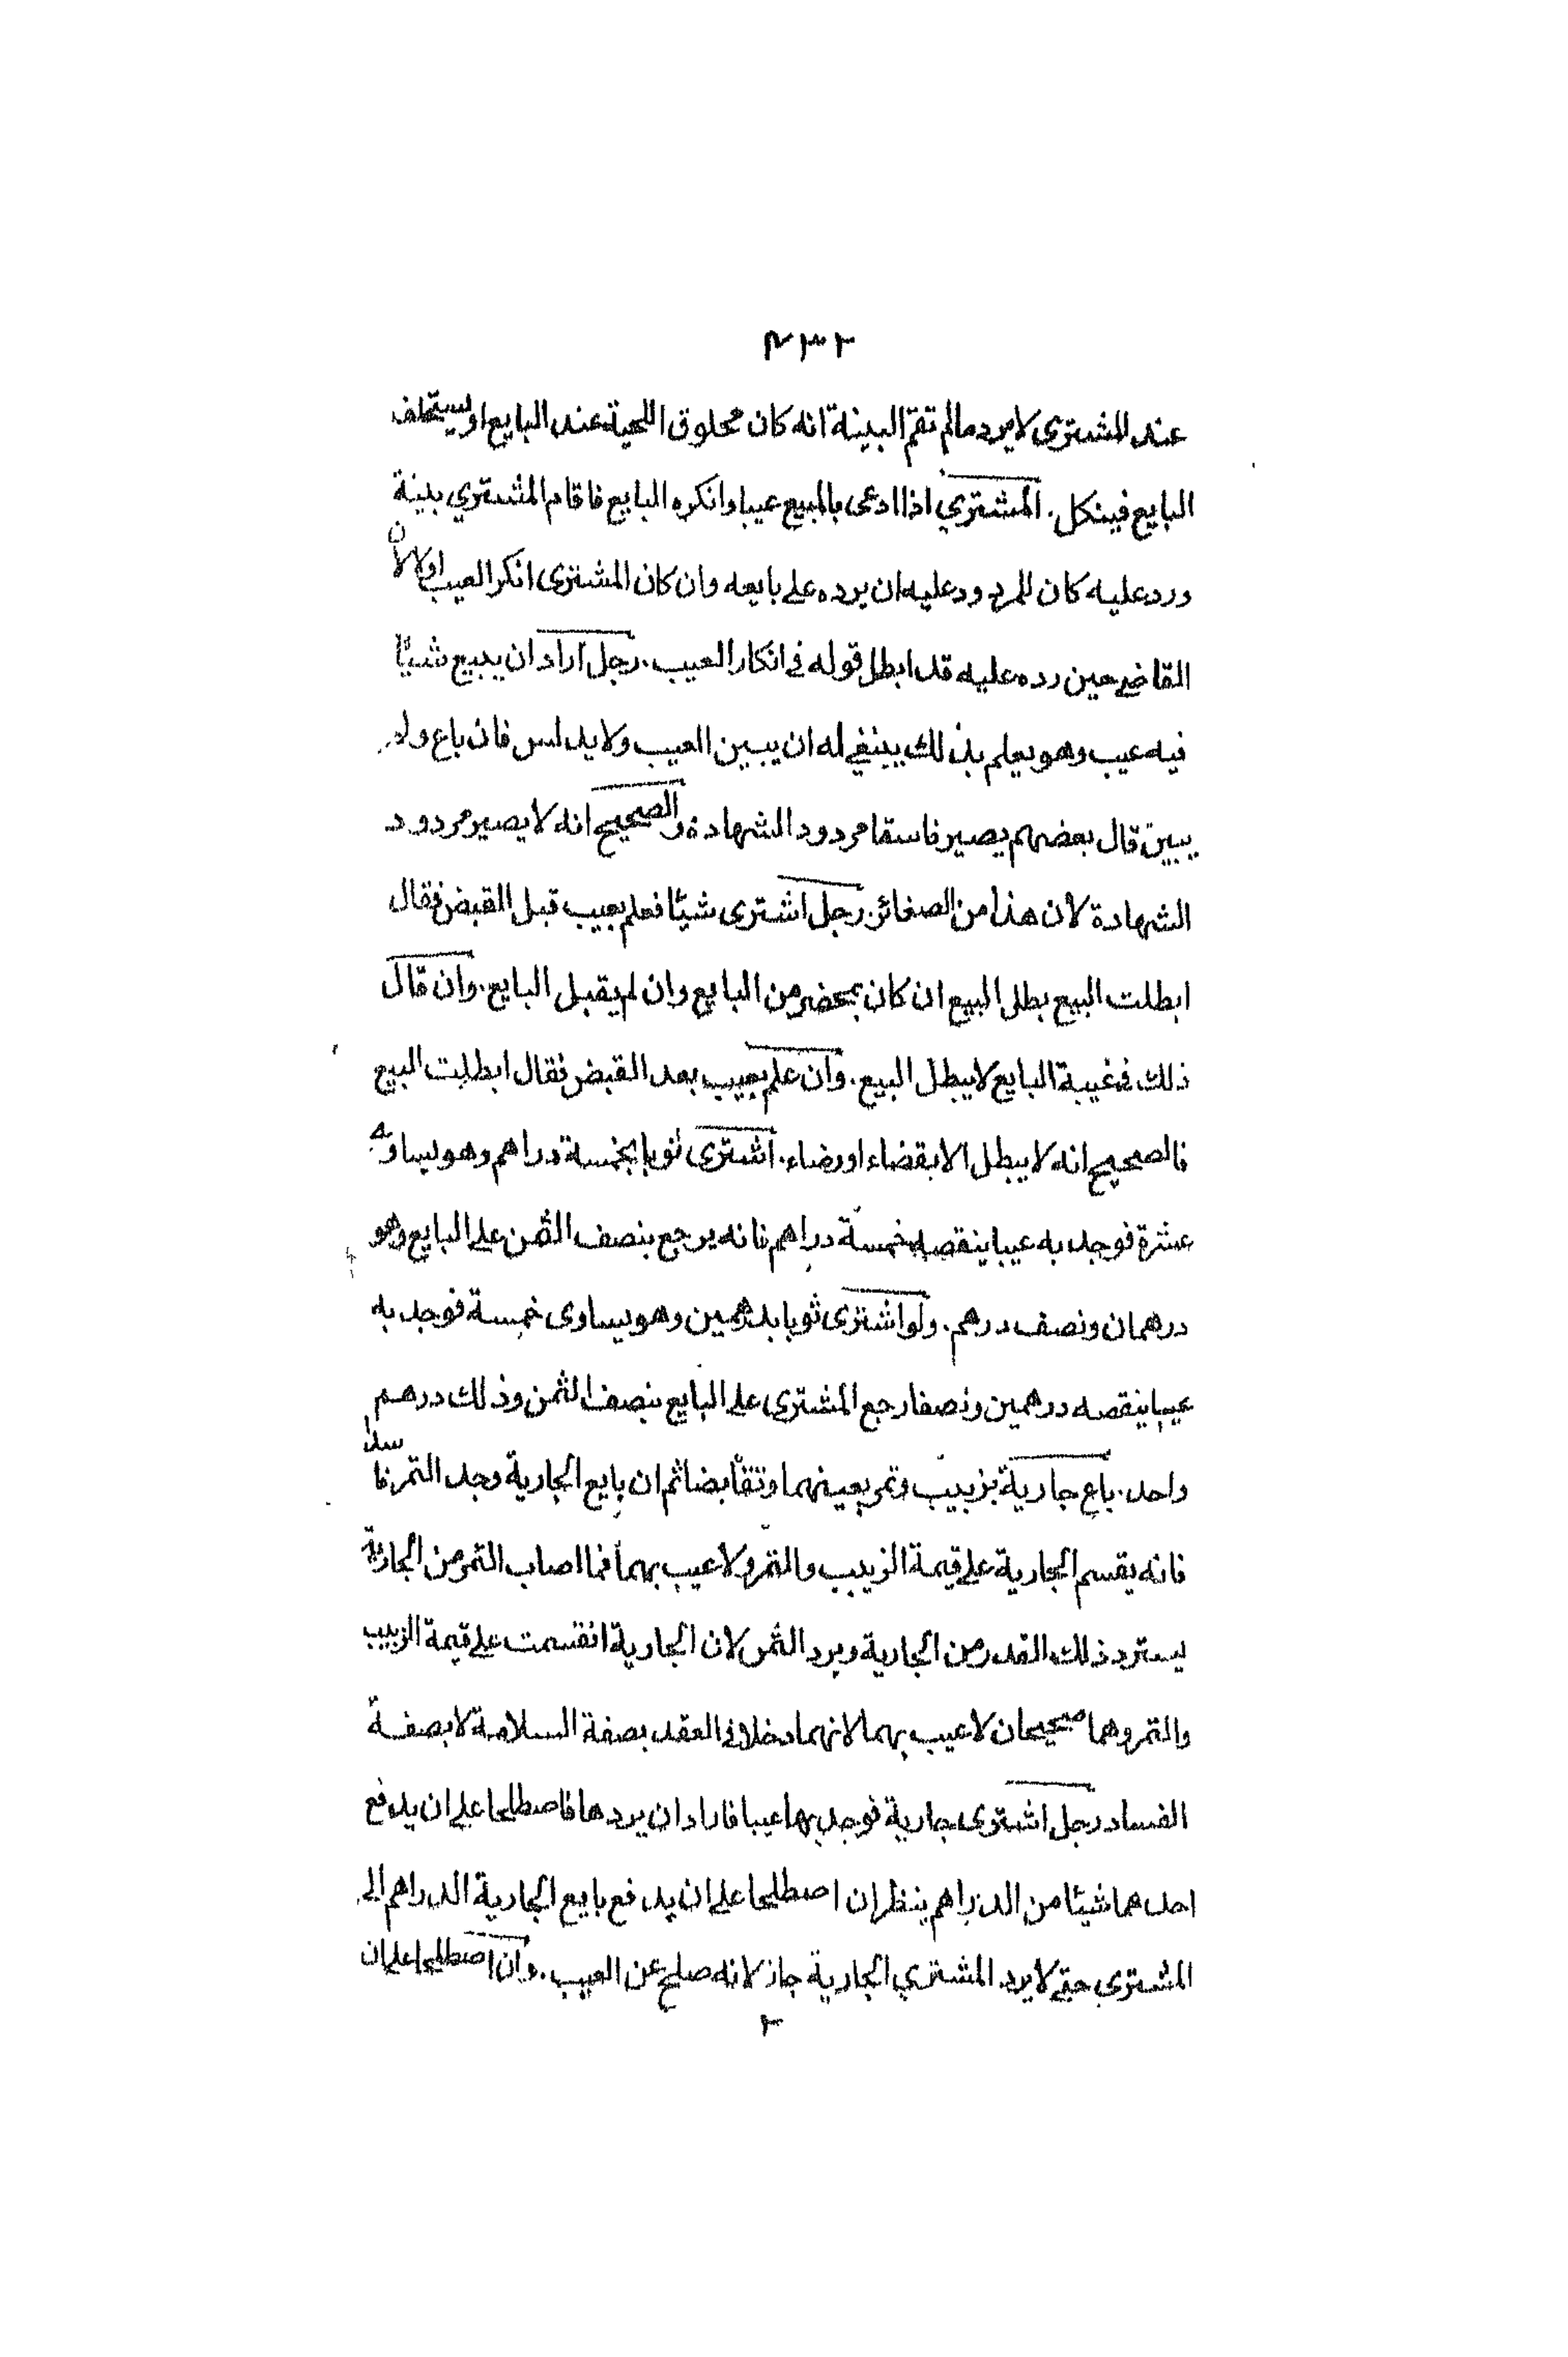 ٢٣٢
عند المشترى لا يرد مالم تقم البينة انه كان محلوق اللحية عند البايع او يستحلف
البايع فينكل. المشتري اذا ادعى بالمبيع عيبا وانكره البايع فاقام المشتري بينة
ورد عليه كان للمردود عليه ان يرده على بايعه وان كان المشترى انكر العيب اولا لان
القاضى حين رده عليه قد ابطل قوله فى انكار العيب. رجل اراد ان يبيع شيئا
فيه عيب وهو يعلم بذلك ينبغى له ان يبين العيب ولا يدلس فان باع ولم
يبين قال بعضهم يصير فاسقا مردود الشهادة والصحيح انه لا يصير مردود
الشهادة لان هذا من الصغائر. رجل اشترى شيئا فعلم بعيب قبل القبض فقال
ابطلت البيع بطل البيع ان كان بمحضر من البايع وان لم يقبل البايع. وان قال
ذلك فى غيبة البايع لا يبطل البيع. وان علم بعيب بعد القبض فقال ابطلت البيع
فالصحيح انه لا يبطل الا بقضاء او رضاء. اشترى ثوبا بخمسة دراهم وهو يساوى
عشرة فوجد به عيبا ينقصه خمسة دراهم فانه يرجع بنصف الثمن على البايع وهو
درهمان ونصف درهم. ولو اشترى ثوبا بدرهمين وهو يساوى خمسة فوجد به
عيبا ينقصه درهمين ونصفا رجع المشترى على البايع بنصف الثمن وذلك درهم
واحد. باع جارية بزبيب وتمر بعينهما وتقابضا ثم ان بايع الجارية وجد التمر فاسدا
فانه يقسم الجارية على قيمة الزبيب والتمر ولا عيب بهما فما اصاب التمر من الجارية
يسترد ذلك القدر من الجارية ويرد التمر لان الجارية انقسمت على قيمة الزبيب
والتمر وهما صحيحان لا عيب بهما لانهما دخلا فى العقد بصفة السلامة لا بصفة
الفساد رجل اشترى جارية فوجد بها عيبا فاراد ان يردها فاصطلحا على ان يدفع
احدهما شيئا من الدراهم ينظر ان اصطلحا على ان يدفع بايع الجارية الدراهم الى
المشترى حتى لا يرد المشتري الجارية جاز لانه صلح عن العيب. وان اصطلحا على ان
٢